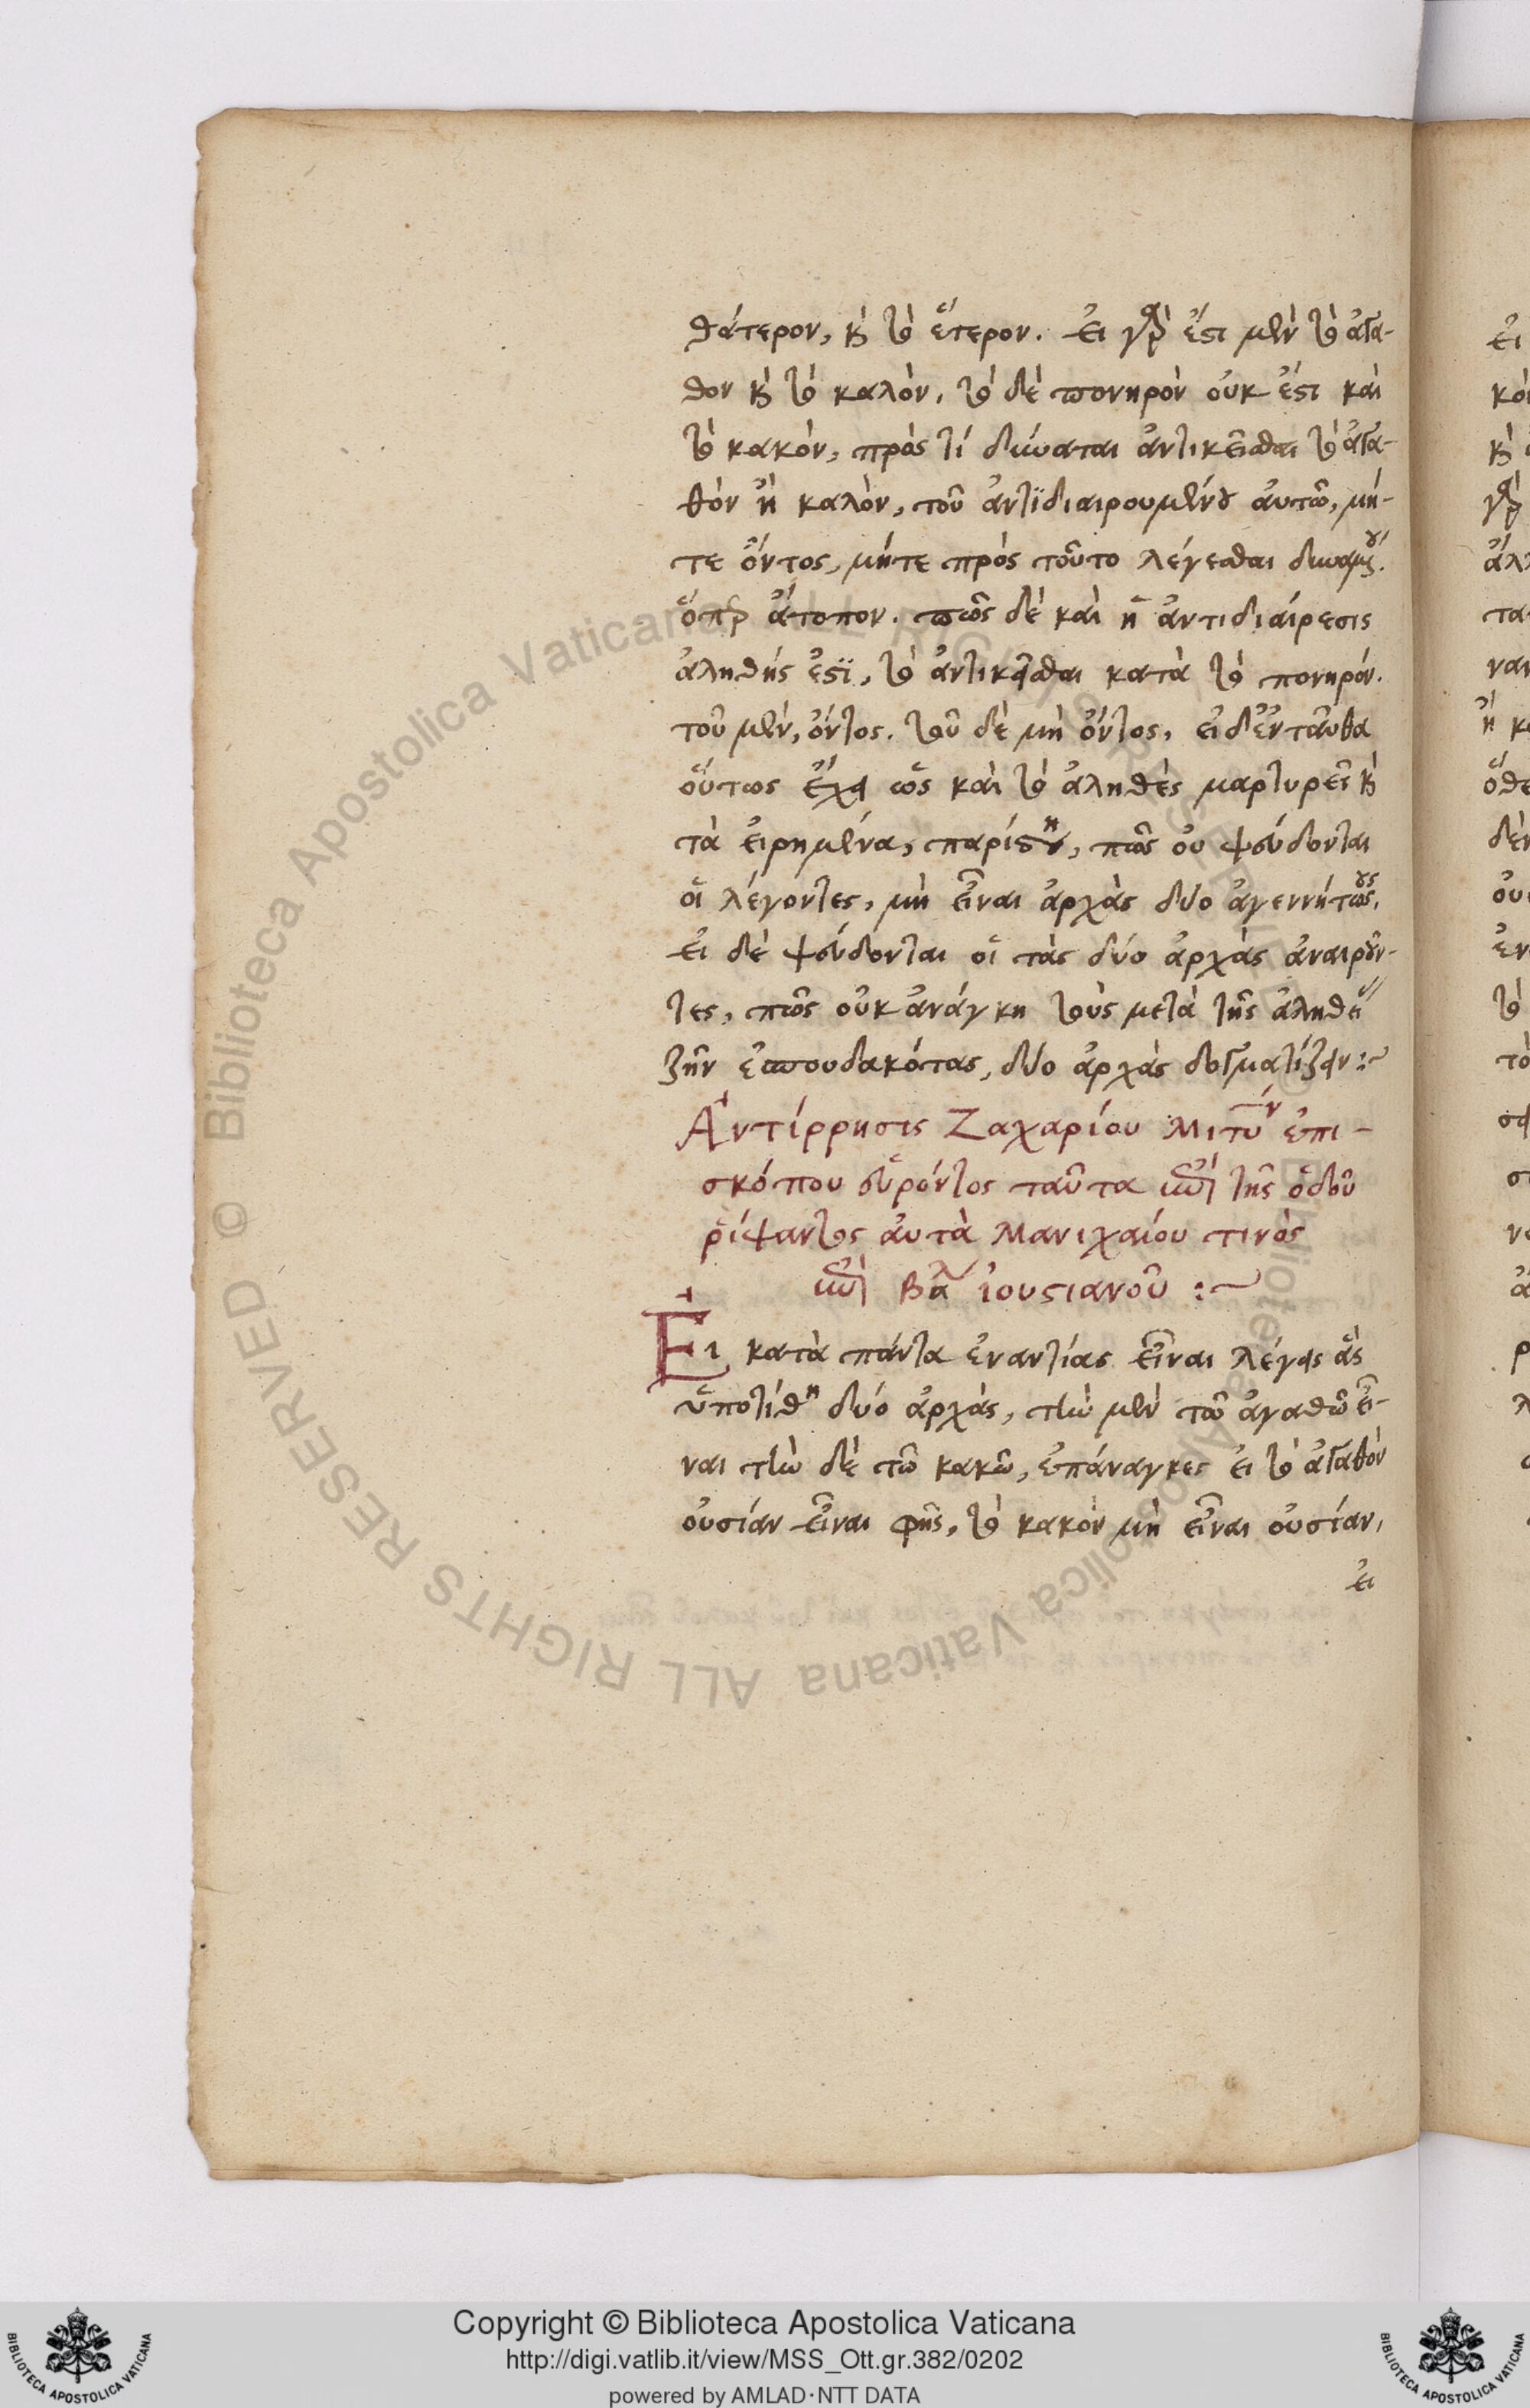 θάτερον, κὶ τὸ ἕτερον. εἰ γὰρ ἔστι μὲν τὸ ἀγα-
θον κὶ τὸ καλὸν, τὸ δὲ πονηρὸν οὐκ ἔστι καὶ
τὸ κακόν, πρὸς τί δύναται ἀντικεῖσθαι τὸ ἀγα-
θόν ἢ καλὸν, τοῦ ἀντϊδιαιρουμένου αὐτῶ, μή-
τε ὄντος, μήτε πρὸς τοῦτο λέγεσθαι δυναμένου.
ὅπερ ἄτοπον. πῶς δὲ καὶ ἡ ἀντιδιαίρεσις
ἀληθής ἐστϊ, τὸ ἀντικεῖσθαι κατὰ τὸ πονηρόν.
τοῦ μὲν, ὄντος. τοῦ δὲ μὴ ὄντος, εἰ δ' ἐνταῦθα
οὕτως ἔχει ὡς καὶ τὸ ἀληθὲς μαρτυρεῖ κὶ
τὰ εἰρημένα, παρίστη, πῶς οὐ ψεύδονται
οἱ λέγοντες, μὴ εἶναι ἀρχὰς δύο ἀγεννήτους,
εἰ δὲ ψεύδονται οἱ τὰς δύο ἀρχὰς ἀναιροῦν-
τες, πῶς οὐκ ἀνάγκη τοὺς μετὰ τῆς ἀληθεί
ζῆν ἐσπουδακότας, δύο ἀρχὰς δογματίζειν :~
Ἀντίρρησις Ζαχαρίου Μιτυ ἐπι-
σκόπου εὑρόντος ταῦτα ἐπὶ τῆς ὁδοῦ
ῥίψαντος αὐτὰ Μανιχαίου τινὸς
ἐπὶ Βα ἰουστιανοῦ :~
Εἰ κατὰ πάντα ἐναντίας εἶναι λέγεις ἃς
ὑποτίθη δυό ἀρχὰς, τὴν μὲν τῶ ἀγαθῶ εἶ-
ναι τὴν δὲ τῶ κακῶ, ἐπάναγκες εἰ τὸ ἀγαθὸν
οὐσίαν εἶναι φῆς, τὸ κακὸν μὴ εἶναι οὐσίαν,
εἰ
Copyright © Biblioteca Apostolica Vaticana
http://digi.vatlib.it/view/MSS_Ott.gr.382/0202
powered by AMLAD·NTT DATA